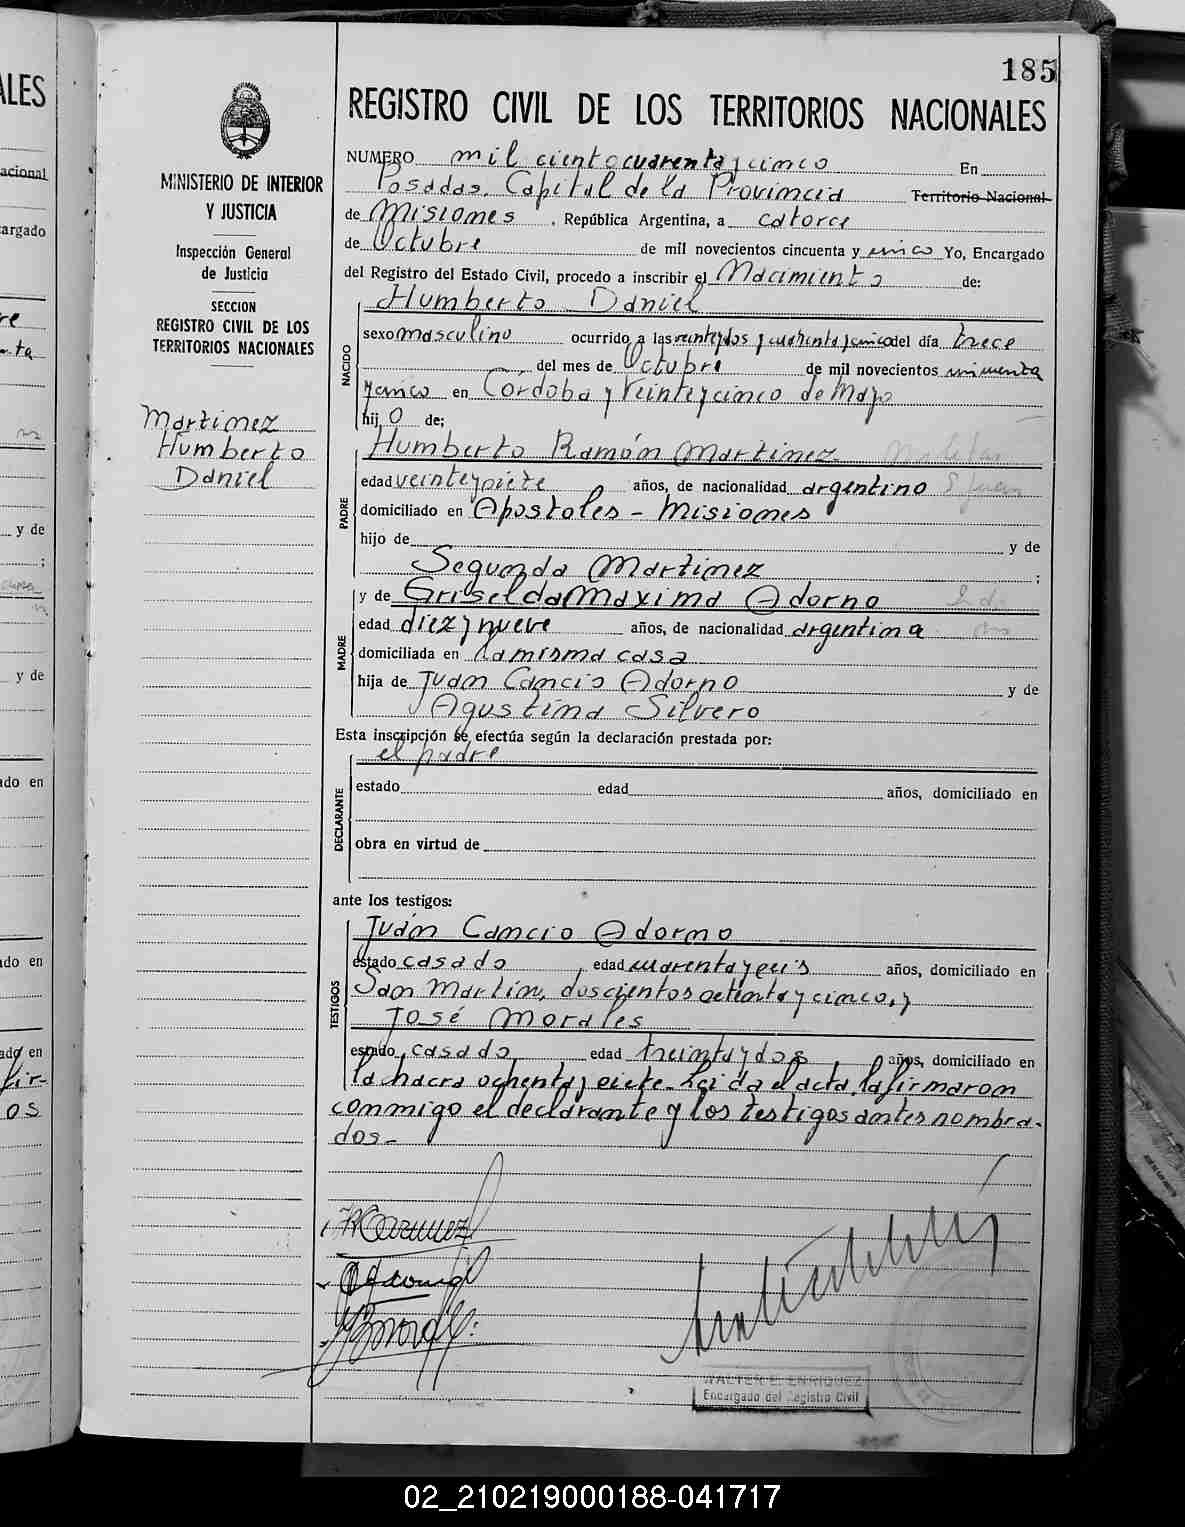 185
REGISTRO CIVIL DE LOS TERRITORIOS NACIONALES
MINISTERIO DE INTERIOR
Y JUSTICIA
Inspección General
de Justicia
SECCION
REGISTRO CIVIL DE LOS
TERRITORIOS NACIONALES
Martinez
Humberto
Daniel
NUMERO mil ciento cuarenta y cinco En
Posadas, Capital de la Provincia Territorio Nacional
de Misiones, República Argentina, a catorce
de Octubre de mil novecientos cincuenta y cinco Yo, Encargado
del Registro del Estado Civil, procedo a inscribir el Nacimiento de:
NACIDO
Humberto Daniel
sexo masculino ocurrido a las veintydos y cuarenta y cinco del día trece
del mes de Octubre de mil novecientos cincuenta
y cinco en Córdoba y Veinteycinco de Mayo
hijo de;
PADRE
Humberto Ramón Martinez
edad veinteysiete años, de nacionalidad argentino
domiciliado en Apostoles - Misiones
hijo de y de
Segunda Martinez ;
MADRE
y de Griselda Maxima Adorno
edad diez y nueve años, de nacionalidad argentina
domiciliada en la misma casa
hija de Juan Cancio Adorno y de
Agustina Silvero
Esta inscripción se efectúa según la declaración prestada por:
el padre
DECLARANTE
estado edad años, domiciliado en
obra en virtud de
ante los testigos:
TESTIGOS
Juán Cancio Adorno
estado casado, edad cuarenta y seis años, domiciliado en
San Martin, doscientos ochenta y cinco, y
José Morales
estado casado, edad treinta y dos, años, domiciliado en
la hacra ochenta y siete. Leida el acta, la firmaron
conmigo el declarante y los testigos antes nombra-
dos-
WALTER E. ENRIQUEZ
Encargado del Registro Civil
02_210219000188-041717